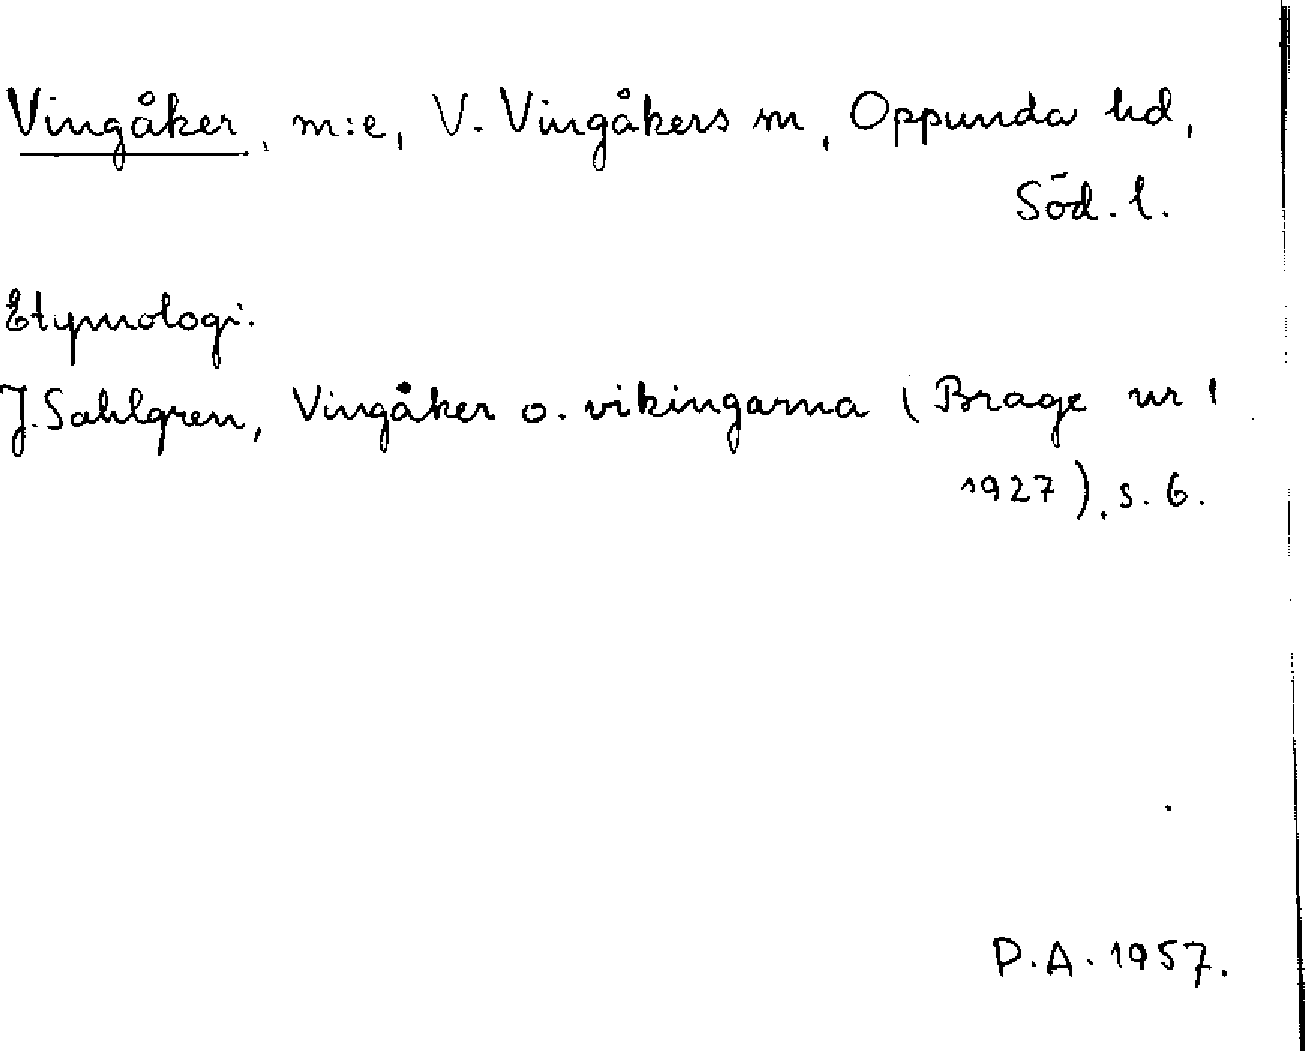 Vingåker, m:e, V. Vingåkers sn, Oppunda hd,
Söd. l.
Etymologi.
J. Sahlgren, Vingåker o. vikingarna (Brage nr 1
1927), s. 6.
P.A. 1957.